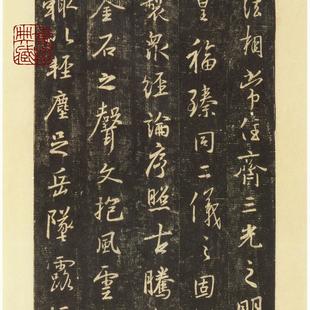 法相常住齊三光之明
皇福臻同二儀之固
製眾經論序照古騰
金石之聲文抱風雲
輒以輕塵足岳墜露